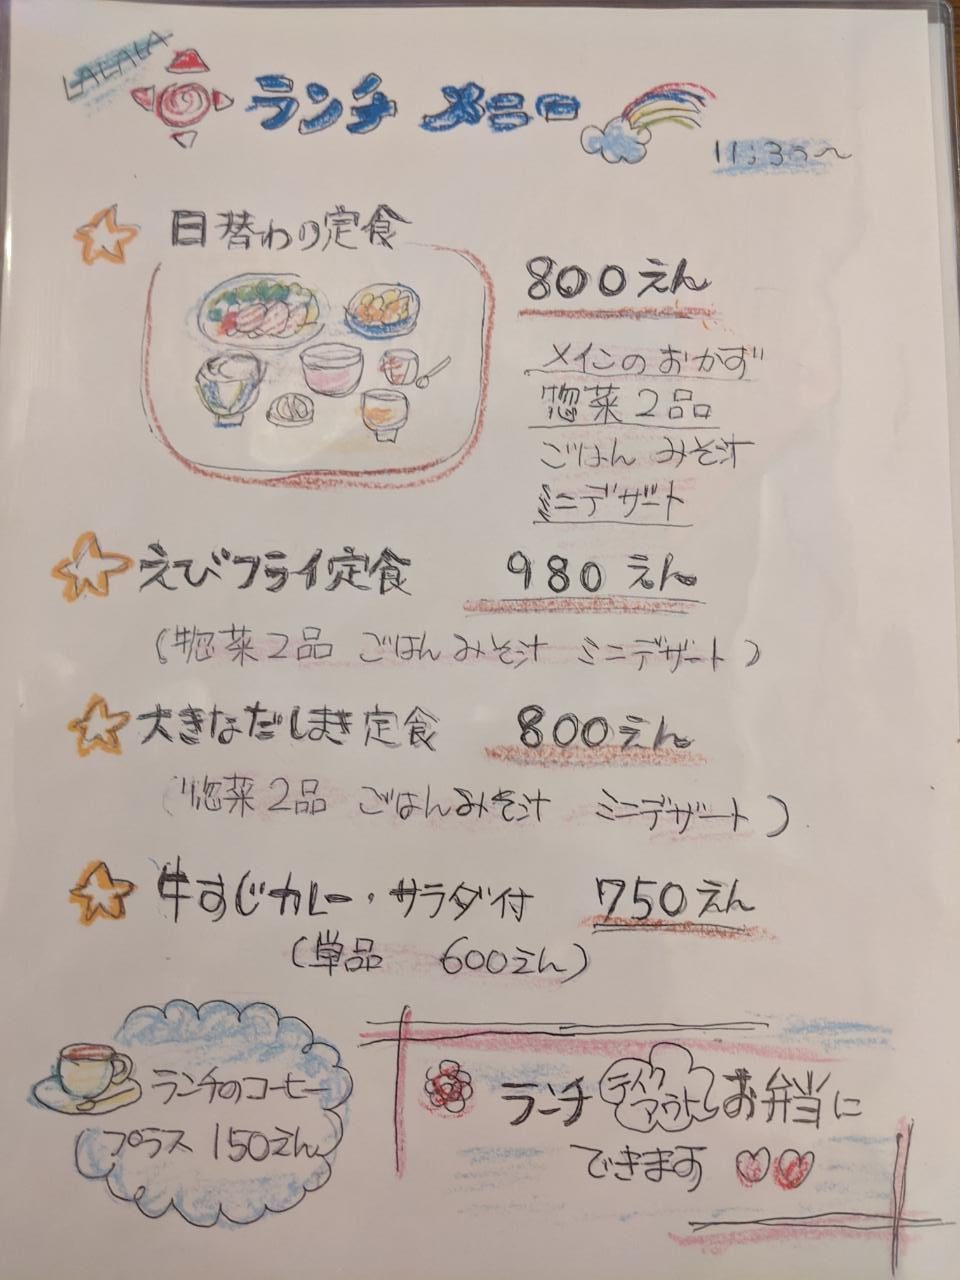 LALALA
ランチ メニュー
11:30〜
日替わり定食
800えん
メインのおかず
惣菜2品
ごはん みそ汁
ミニデザート
えびフライ定食 980えん
(惣菜2品 ごはん みそ汁 ミニデザート)
大きなだしまき定食 800えん
(惣菜2品 ごはん みそ汁 ミニデザート)
牛すじカレー・サラダ付 750えん
(単品 600えん)
ランチのコーヒー
プラス 150えん
ランチ テイクアウト お弁当に
できます